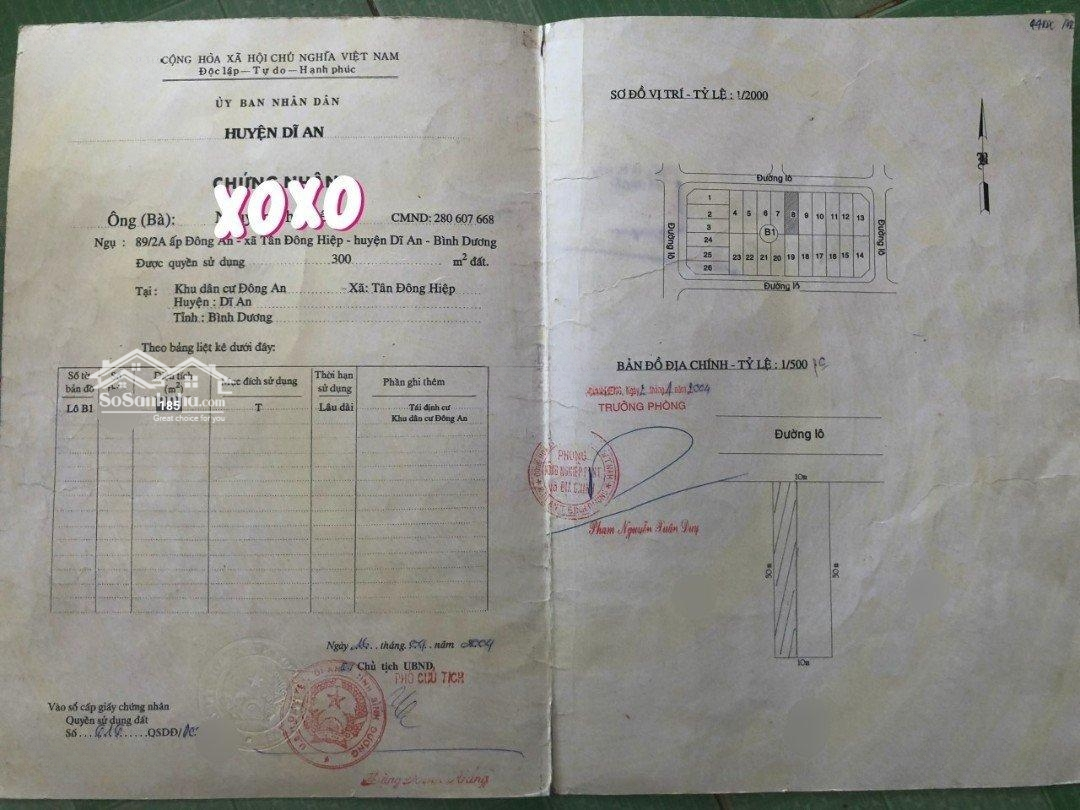 CỘNG HÒA XÃ HỘI CHỦ NGHĨA VIỆT NAM
Độc lập - Tự do - Hạnh phúc
ỦY BAN NHÂN DÂN
HUYỆN DĨ AN
CHỨNG NHẬN
XOXO
Ông (Bà): CMND: 280 607 668
Ngụ : 89/2A ấp Đông An - xã Tân Đông Hiệp - huyện Dĩ An - Bình Dương
Được quyền sử dụng 300 m² đất.
Tại : Khu dân cư Đông An - Xã: Tân Đông Hiệp
Huyện : Dĩ An
Tỉnh : Bình Dương
Theo bảng liệt kê dưới đây:
Số tờ bản đồ Số Diện tích (m²) Mục đích sử dụng Thời hạn sử dụng Phần ghi thêm
Lô B1 185 T Lâu dài Tái định cư Khu dân cư Đông An
SoSanNha.com
Great choice for you
Ngày 16 tháng 04 năm 2004
Chủ tịch UBND
PHÓ CHỦ TỊCH
Vào sổ cấp giấy chứng nhận
Quyền sử dụng đất
Số QSDĐ/
SƠ ĐỒ VỊ TRÍ - TỶ LỆ : 1/2000
Đường lô
1 2 3 24 25 26
4 5 6 7 8 9 10 11 12 13
B1
23 22 21 20 19 18 17 16 15 14
Đường lô
Đường lô
Đường lô
BẢN ĐỒ ĐỊA CHÍNH - TỶ LỆ : 1/500
Ngày 2 tháng 1 năm 2004
TRƯỞNG PHÒNG
PHÒNG
Phạm Nguyễn Xuân Duy
Đường lô
10m
50m
50m
10m